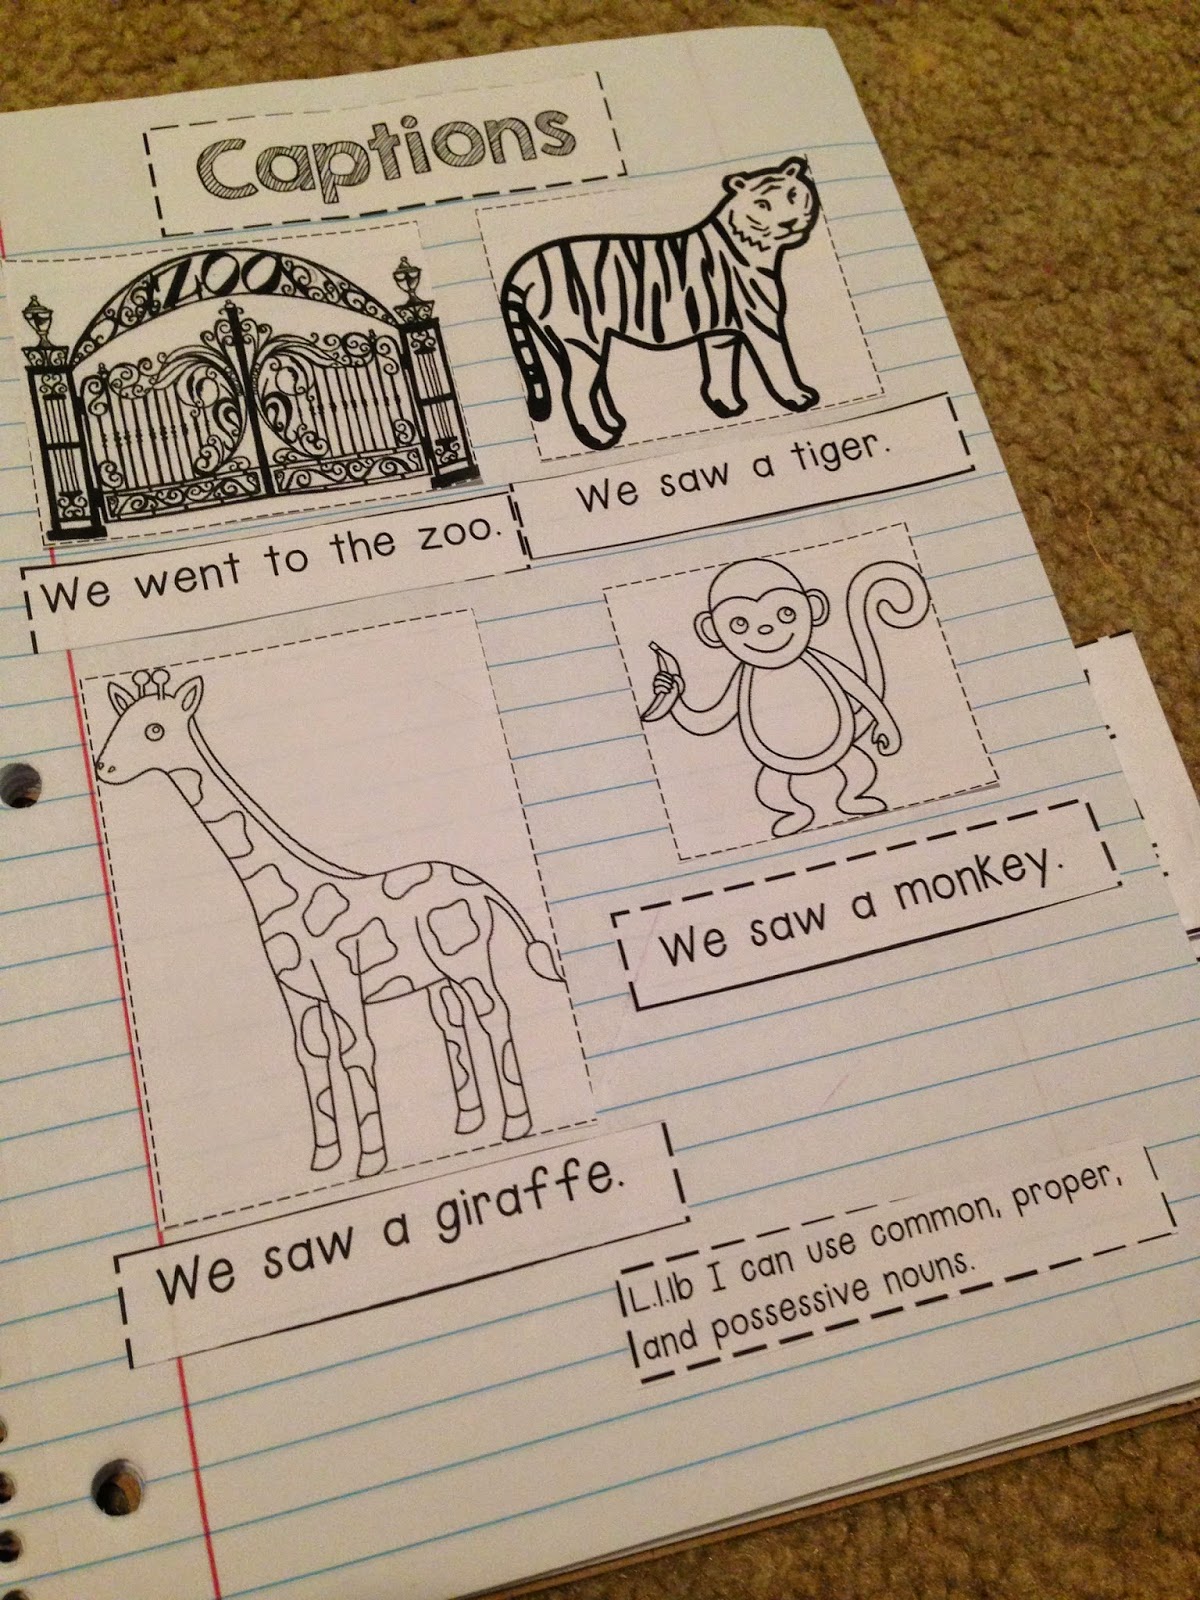 Captions
ZOO
We went to the zoo.
We saw a tiger.
We saw a giraffe.
We saw a monkey.
L.1.1b I can use common, proper,
and possessive nouns.